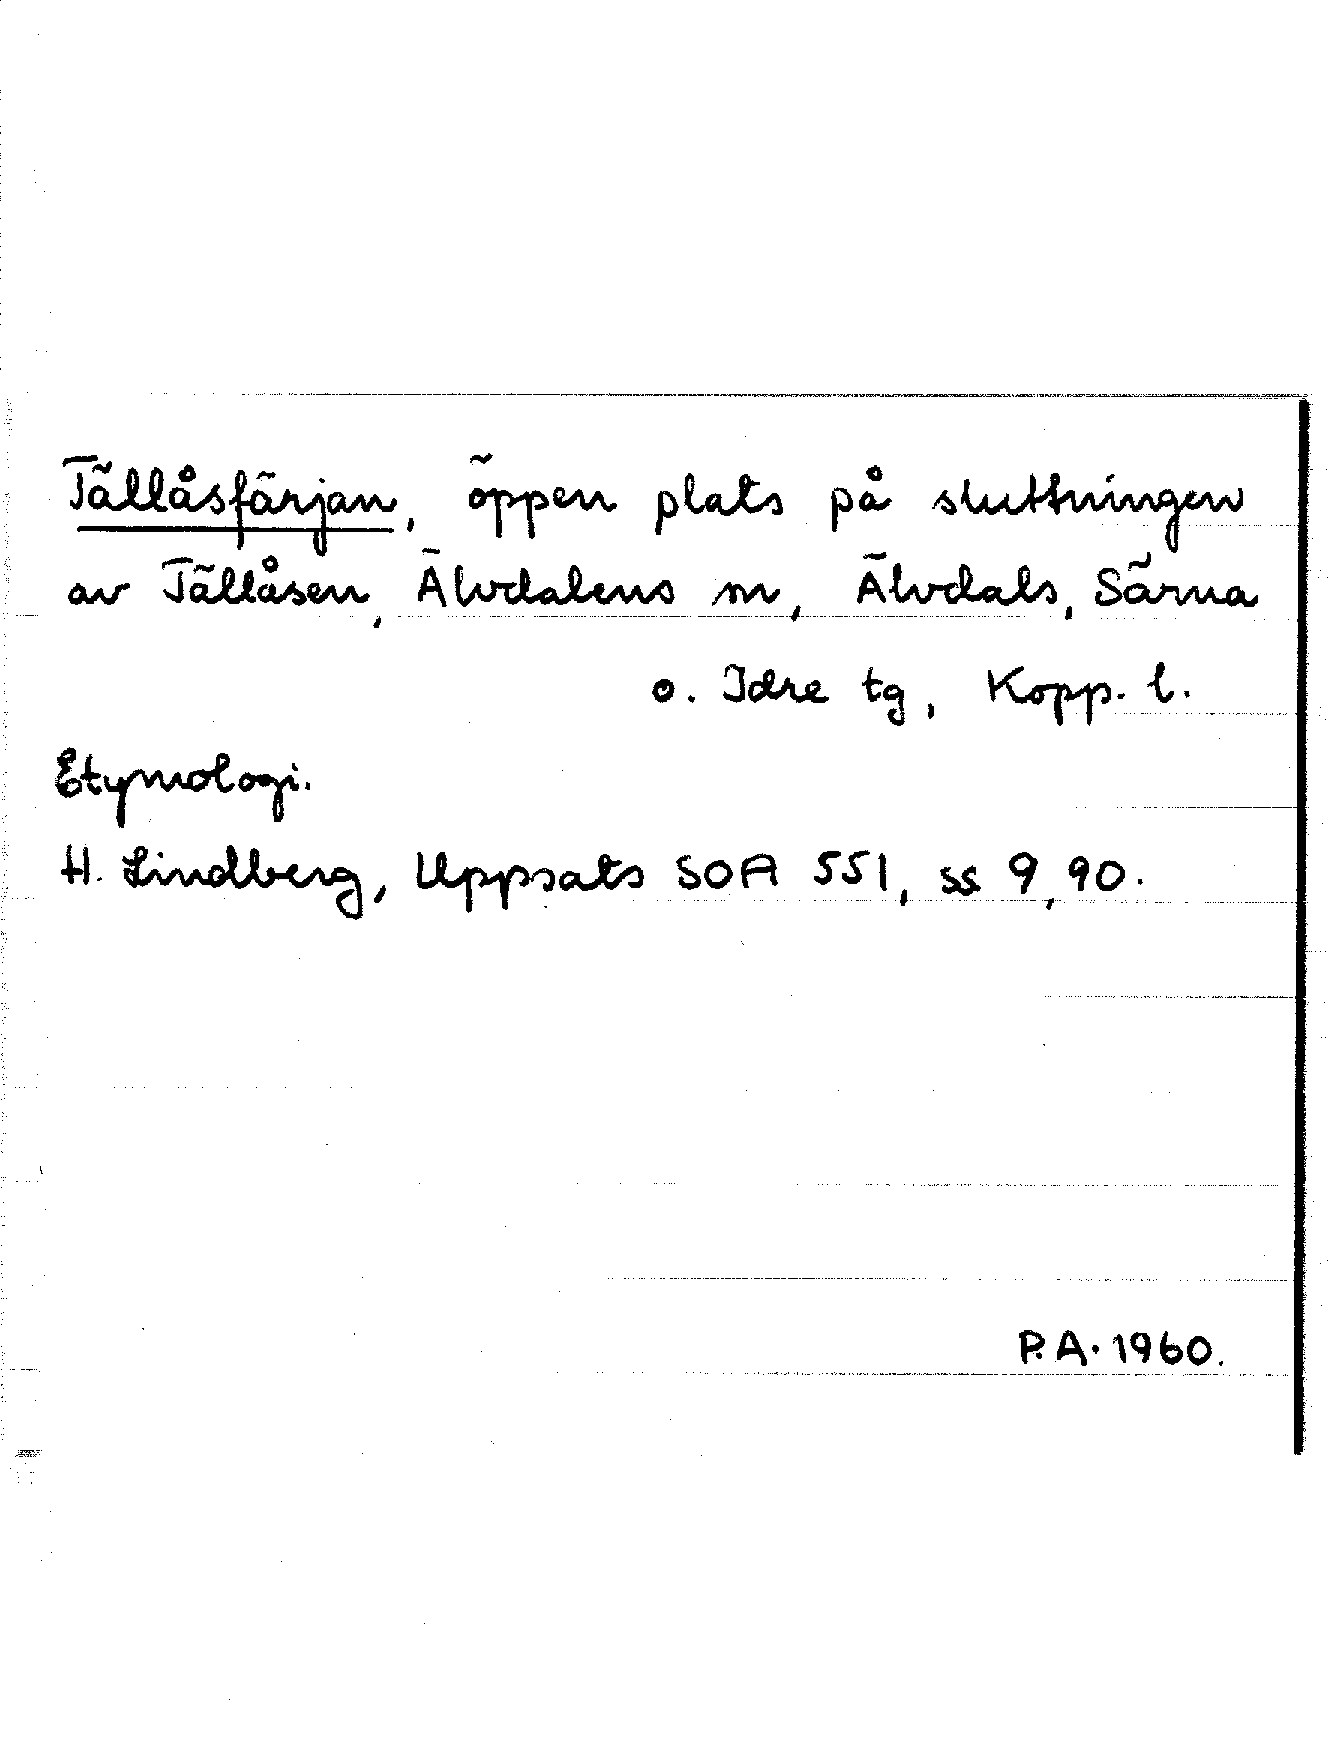 Tällåsfärjan, öppen plats på sluttningen
av Tällåsen, Älvdalens sn, Älvdals, Särna
o. Idre tg, Kopp. l.
Etymologi.
H. Lindberg, Uppsats SOA 551, ss 9, 90.
P.A. 1960.